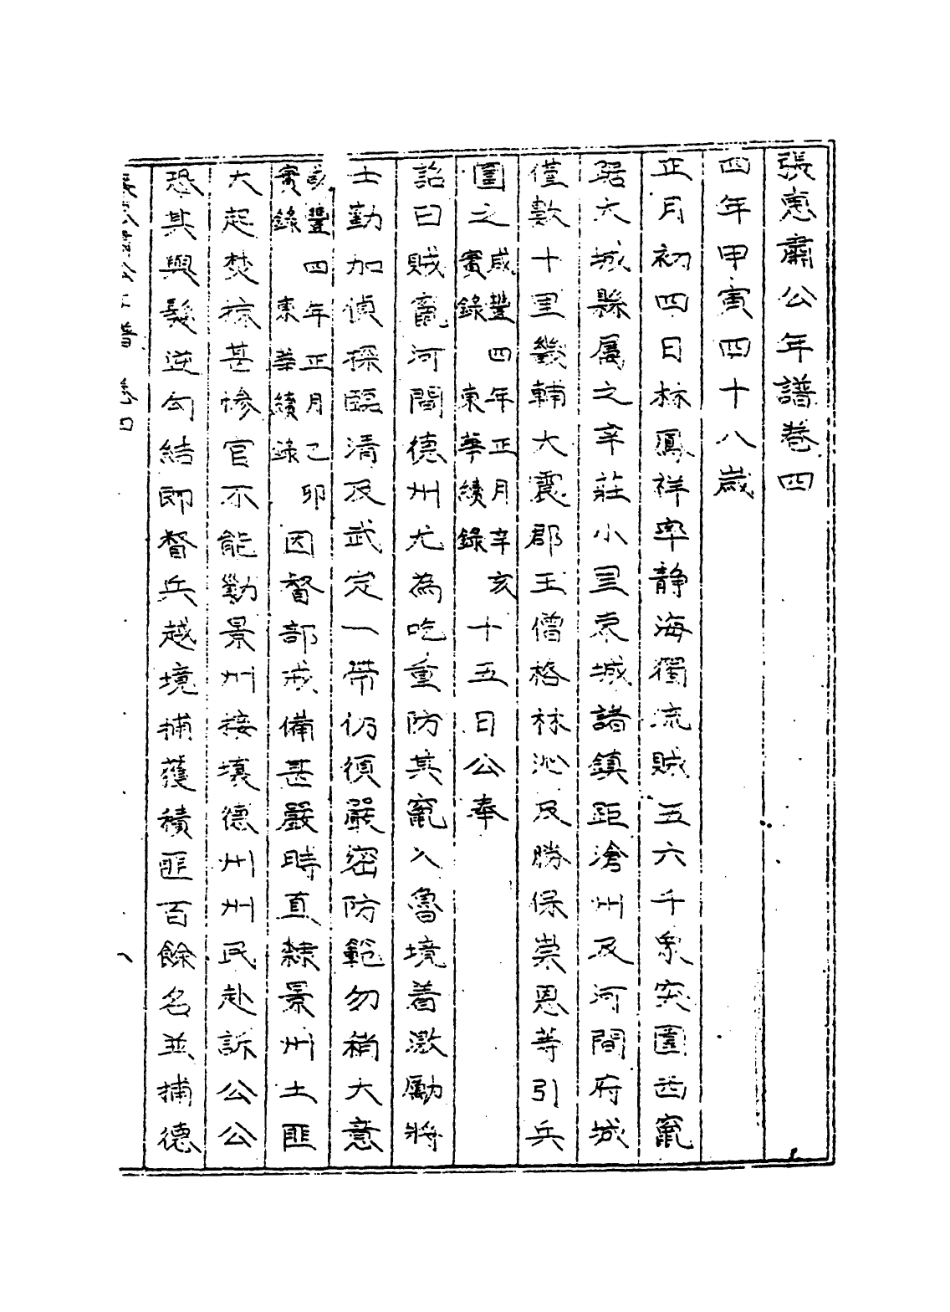 張惠肅公年譜卷四
四年甲寅四十八歲
正月初四日林鳳祥率靜海獨流賊五六千衆突圍西竄
踞大城縣屬之辛莊小里束城諸鎮距滄州及河間府城
僅數十里畿輔大震郡王僧格林沁及勝保崇恩等引兵
圍之咸豐四年正月辛亥實錄東華續錄十五日公奉
詔曰賊竄河間德州尤為吃重防其竄入魯境着激勵將
士勤加偵探臨清及武定一帶仍須嚴密防範勿稍大意
咸豐四年正月己卯實錄東華續錄因督部戒備甚嚴時直隸景州土匪
大起焚掠甚慘官不能勦景州接壤德州州民赴訴公公
恐其與髮逆勾結即督兵越境捕獲積匪百餘名並捕德
張惠肅公年譜 卷四